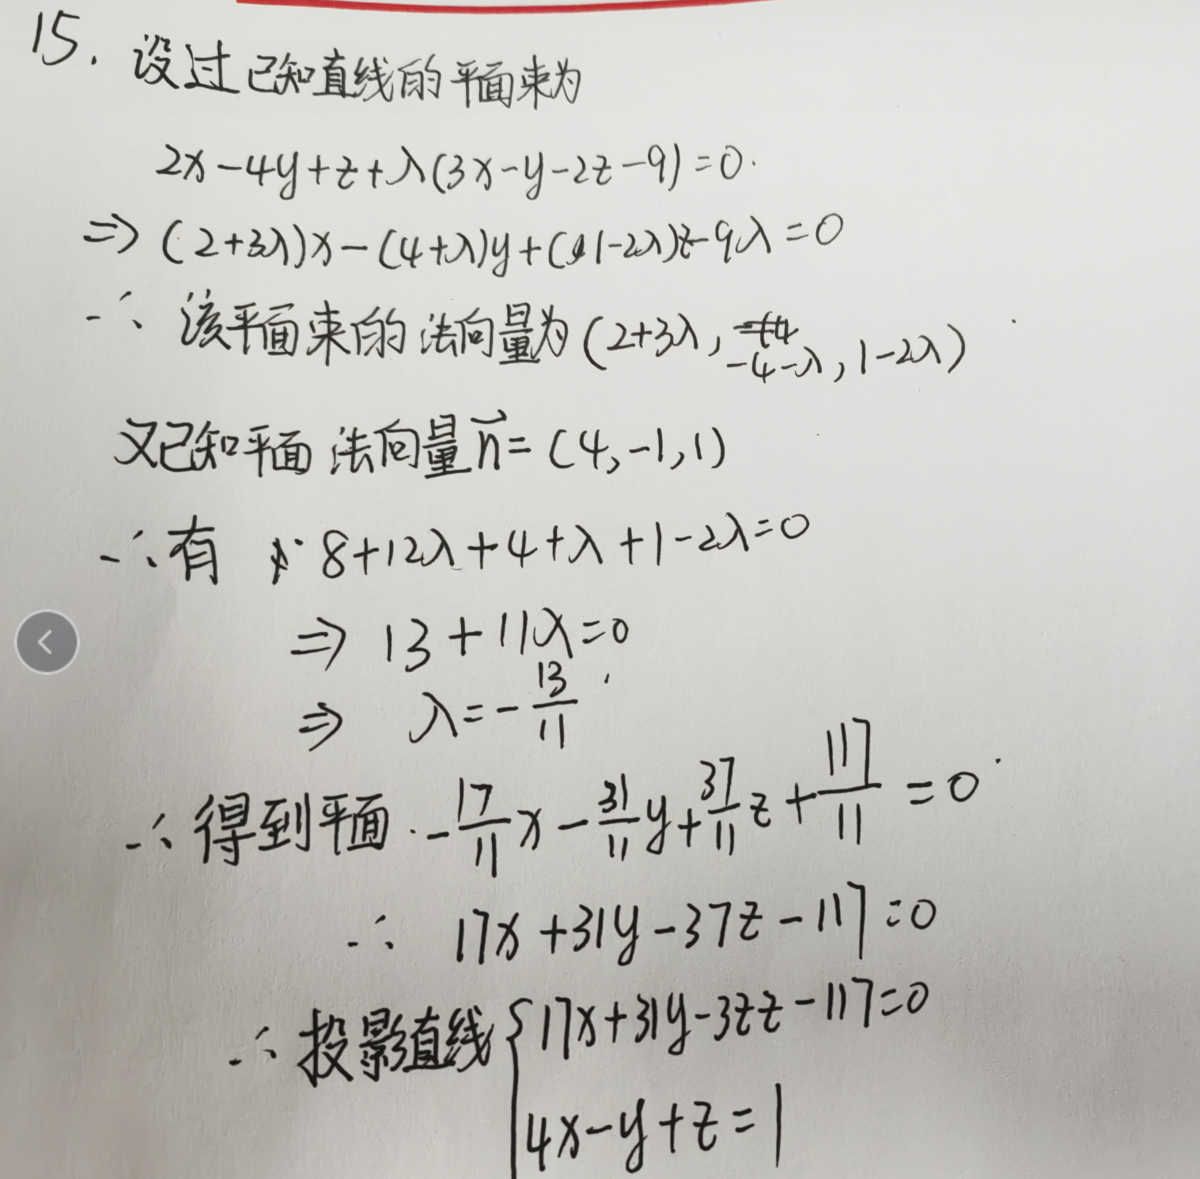 15. 设过已知直线的平面束为
2x-4y+z+λ(3x-y-2z-9)=0.
⇒ (2+3λ)x-(4+λ)y+(1-2λ)z-9λ=0
∴ 该平面束的法向量为(2+3λ, -4-λ, 1-2λ)
又已知平面法向量n⃗=(4,-1,1)
∴有 8+12λ+4+λ+1-2λ=0
⇒ 13+11λ=0
⇒ λ=-13/11
∴得到平面 -17/11x-31/11y+37/11z+117/11=0
∴ 17x+31y-37z-117=0
∴投影直线{17x+31y-37z-117=0
4x-y+z=1